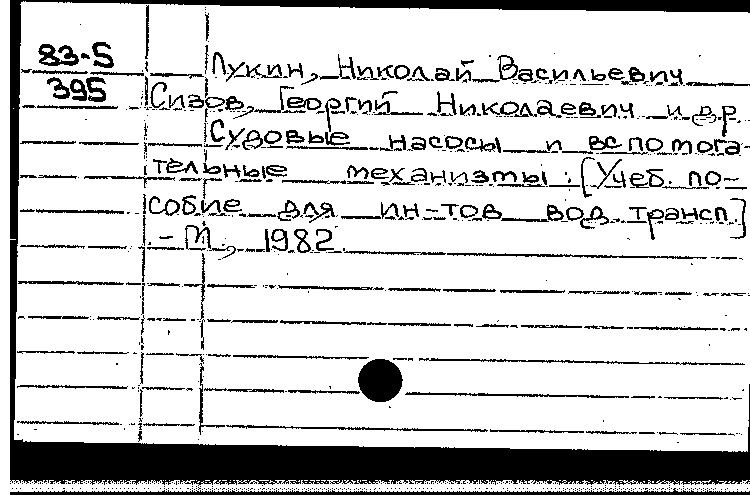 83-5
395
Лукин, Николай Васильевич
Сизов, Георгий Николаевич и др.
Судовые насосы и вспомога-
тельные механизмы: [Учеб. по-
собие для ин-тов вод. трансп.]
- М., 1982.